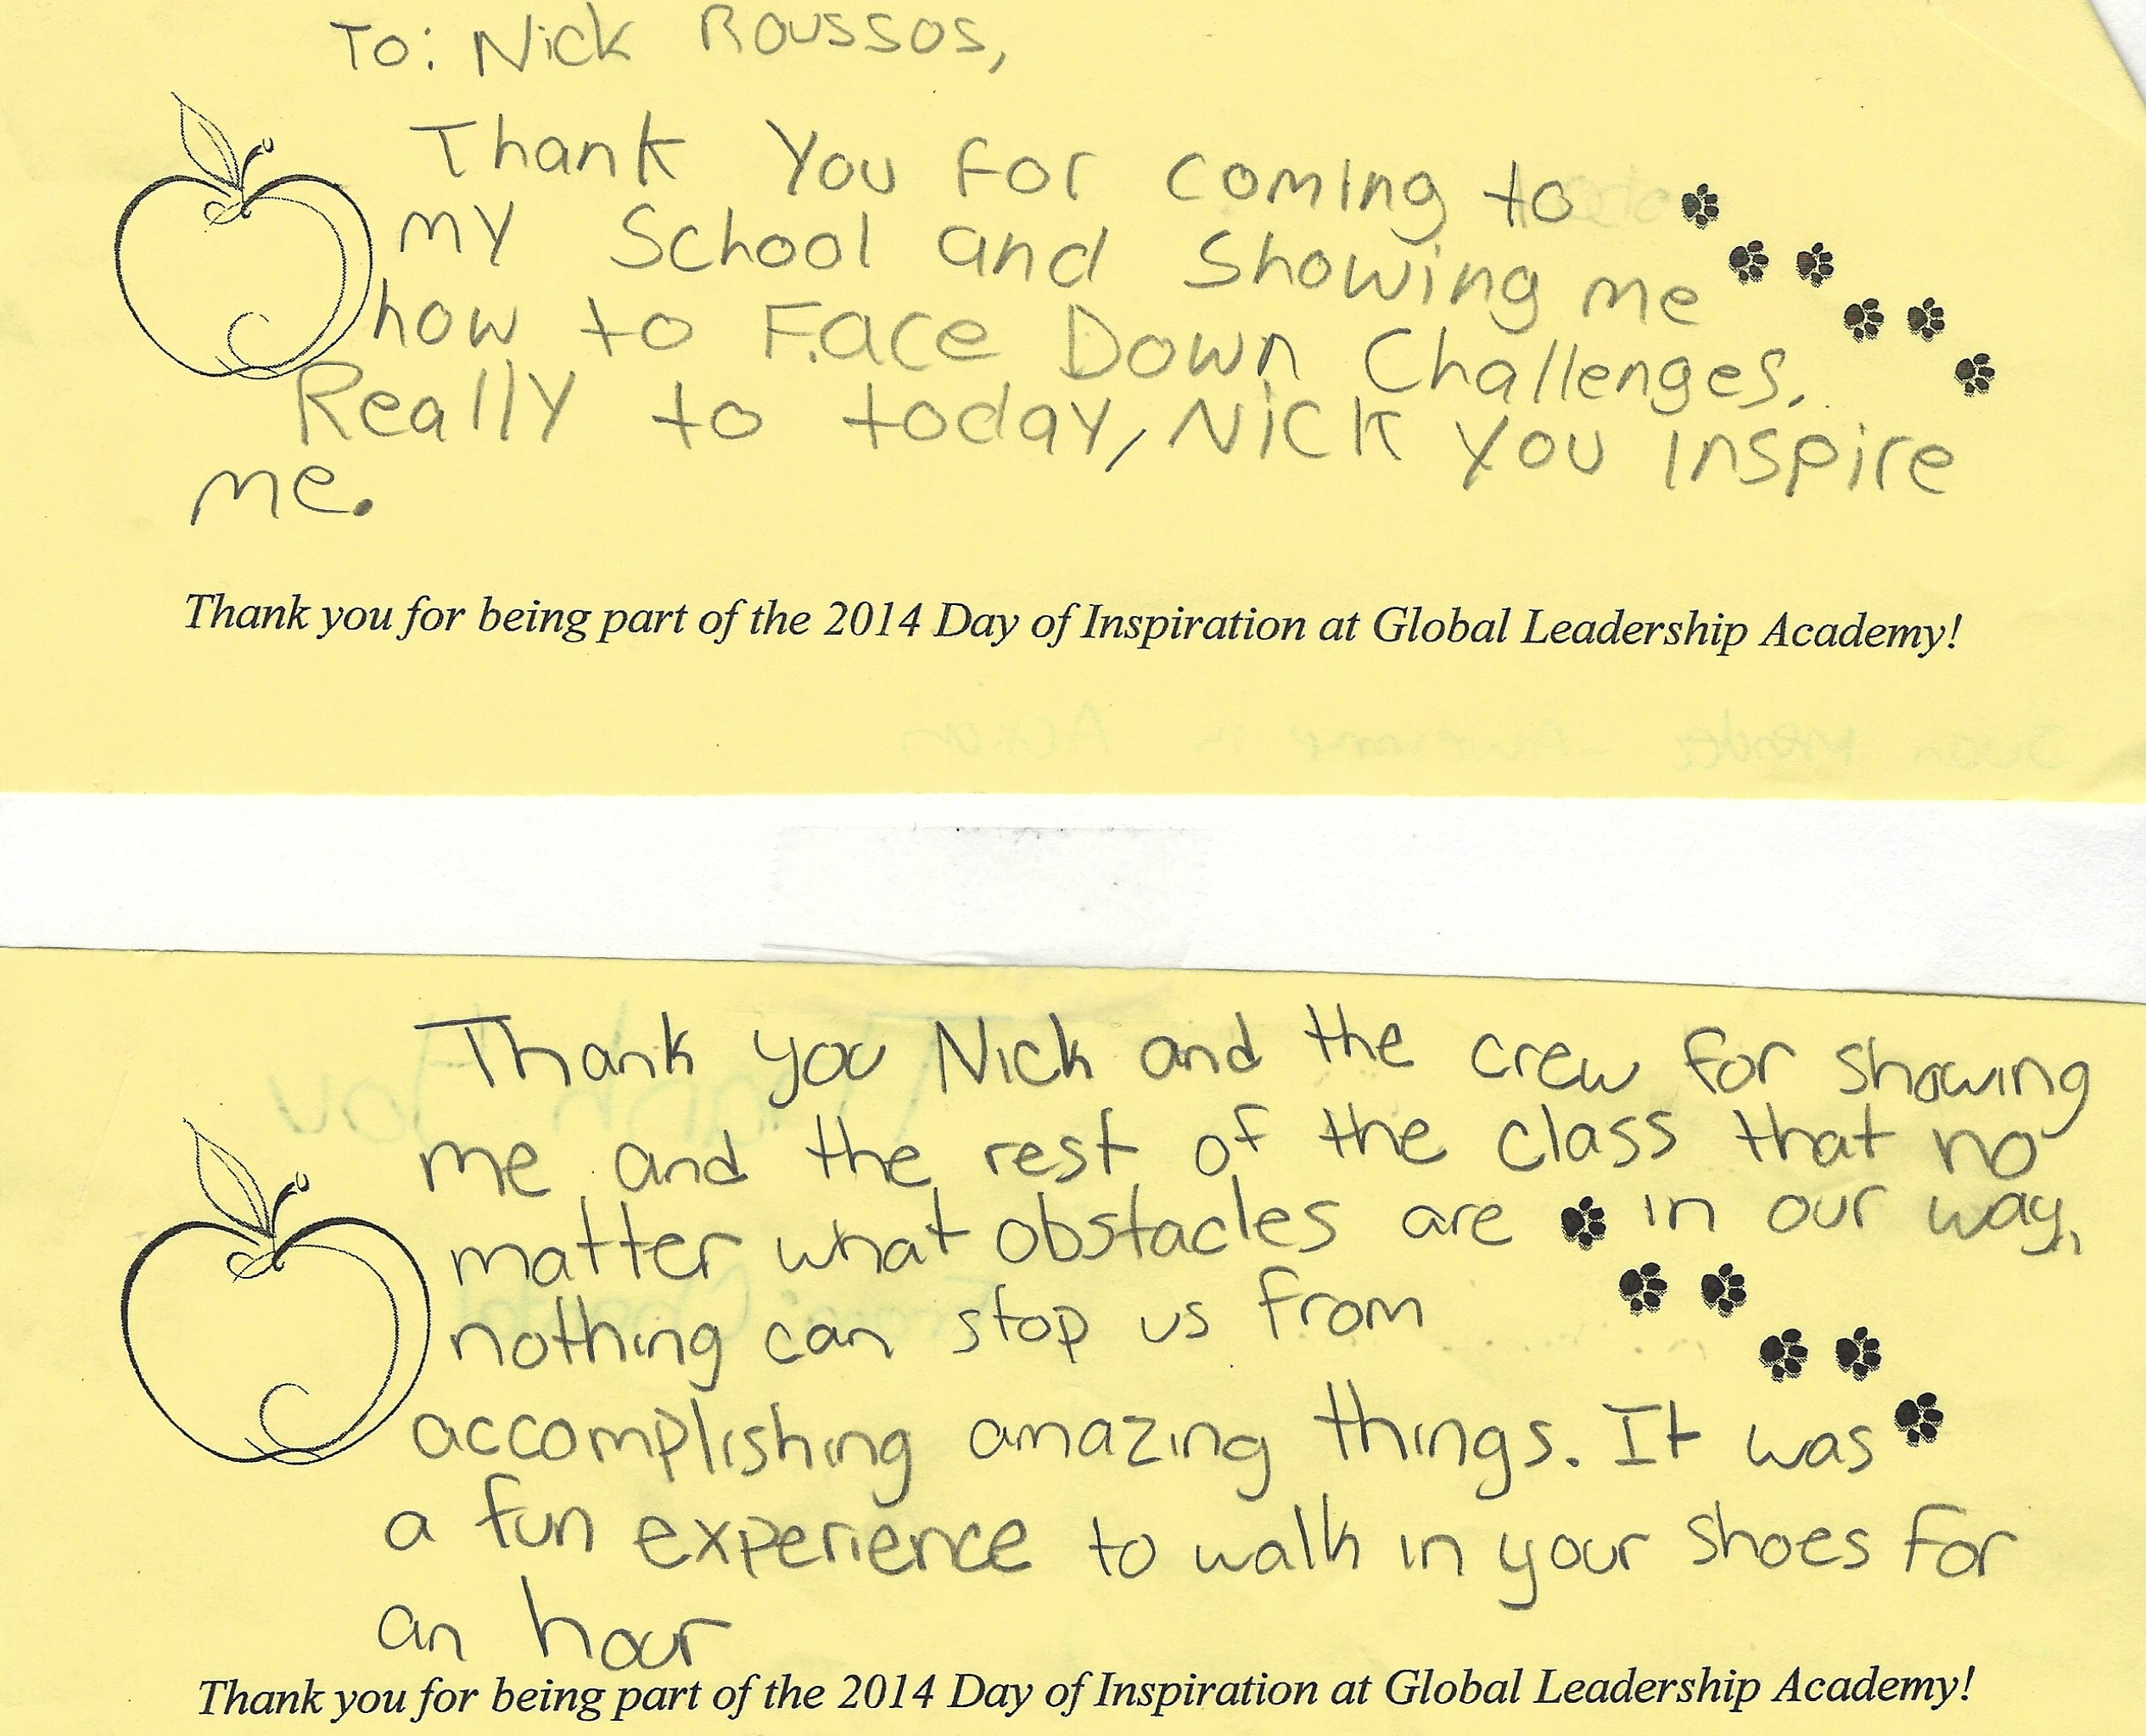 To: Nick Roussos,
Thank You for coming to
my School and Showing me
how to Face Down Challenges.
Really to today, Nick you inspire
me.
Thank you for being part of the 2014 Day of Inspiration at Global Leadership Academy!
Thank you Nick and the crew for showing
me and the rest of the class that no
matter what obstacles are in our way,
nothing can stop us from
accomplishing amazing things. It was
a fun experience to walk in your shoes for
an hour
Thank you for being part of the 2014 Day of Inspiration at Global Leadership Academy!